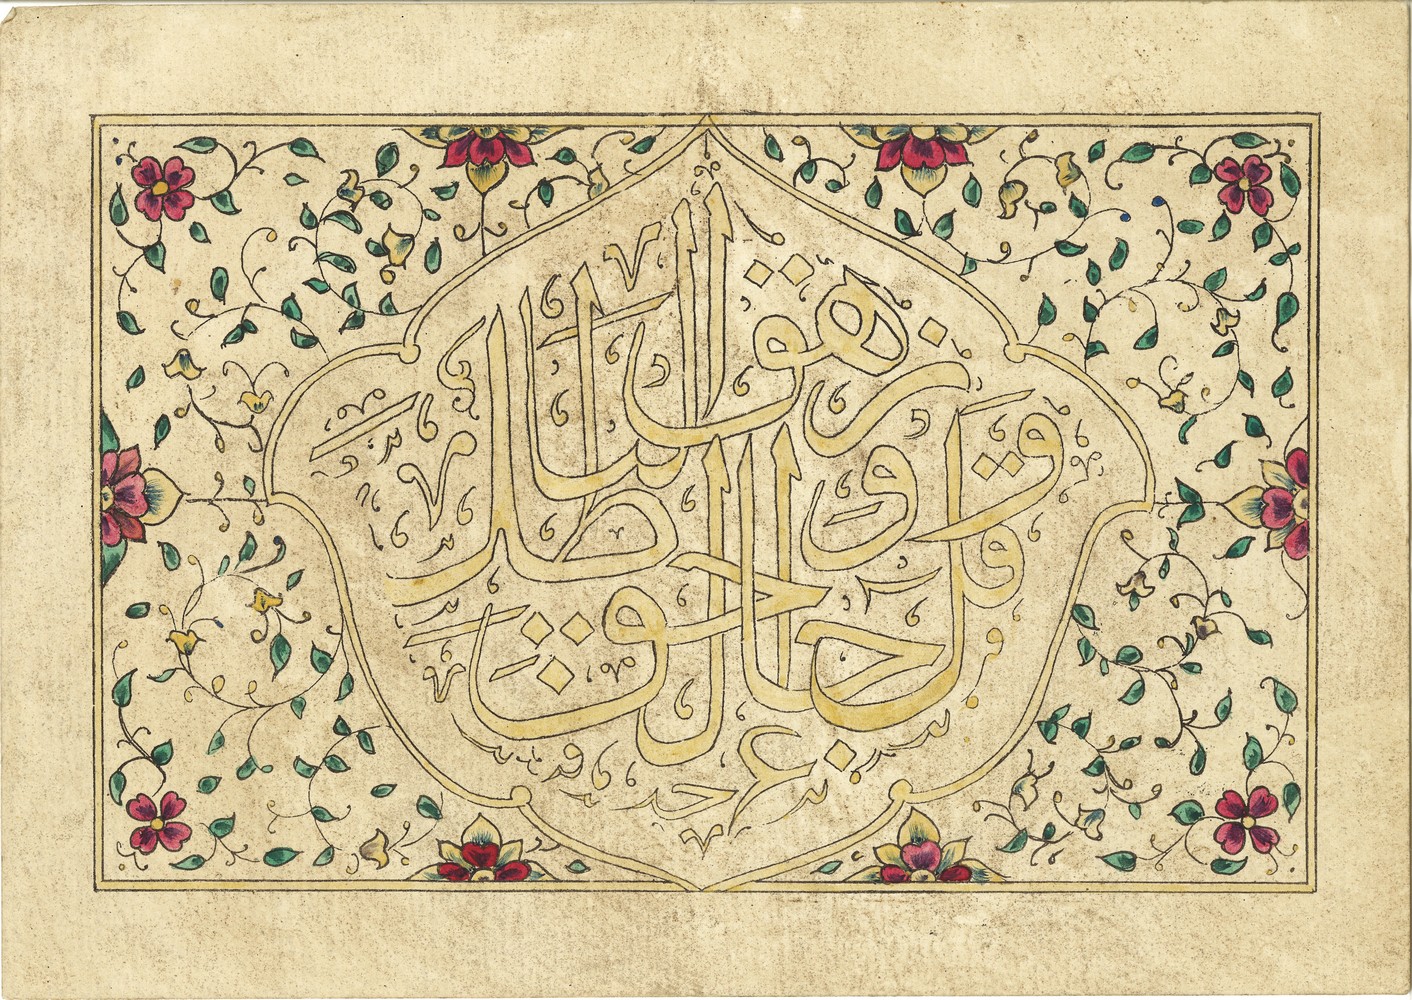 وقل جاء الحق وزهق الباطل